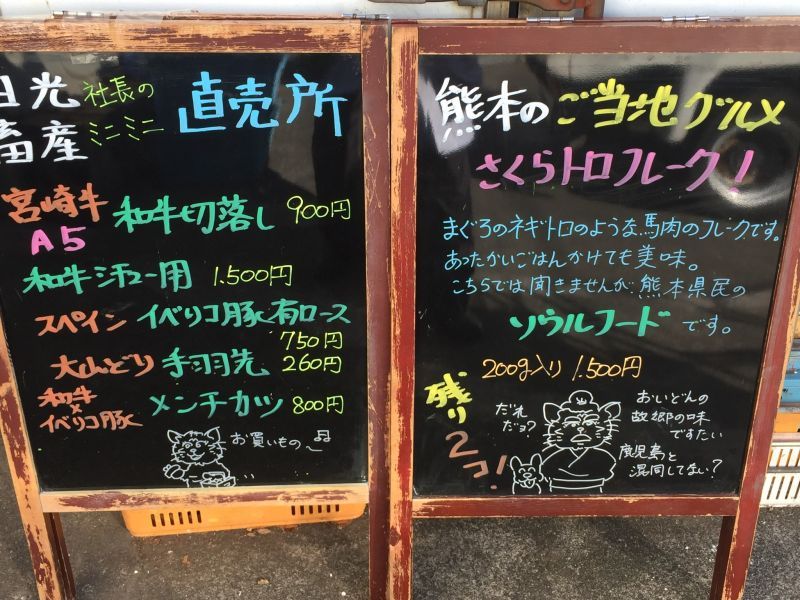 日光
畜産
社長の
ミニミニ
直売所
宮崎牛
A5
和牛切落し 900円
和牛シチュー用 1.500円
スペイン イベリコ豚肩ロース
750円
大山どり 手羽先 260円
和牛
×
イベリコ豚
メンチカツ 800円
お買いもの〜♫
熊本のご当地グルメ
さくらトロフレーク！
まぐろのネギトロのような馬肉のフレークです。
あったかいごはんかけても美味。
こちらでは聞きませんが、熊本県民の
ソウルフード です。
200g入り 1.500円
残り
2
コ！
だれ
だョ？
おいどんの
故郷の味
ですたい
鹿児島と
混同してない？